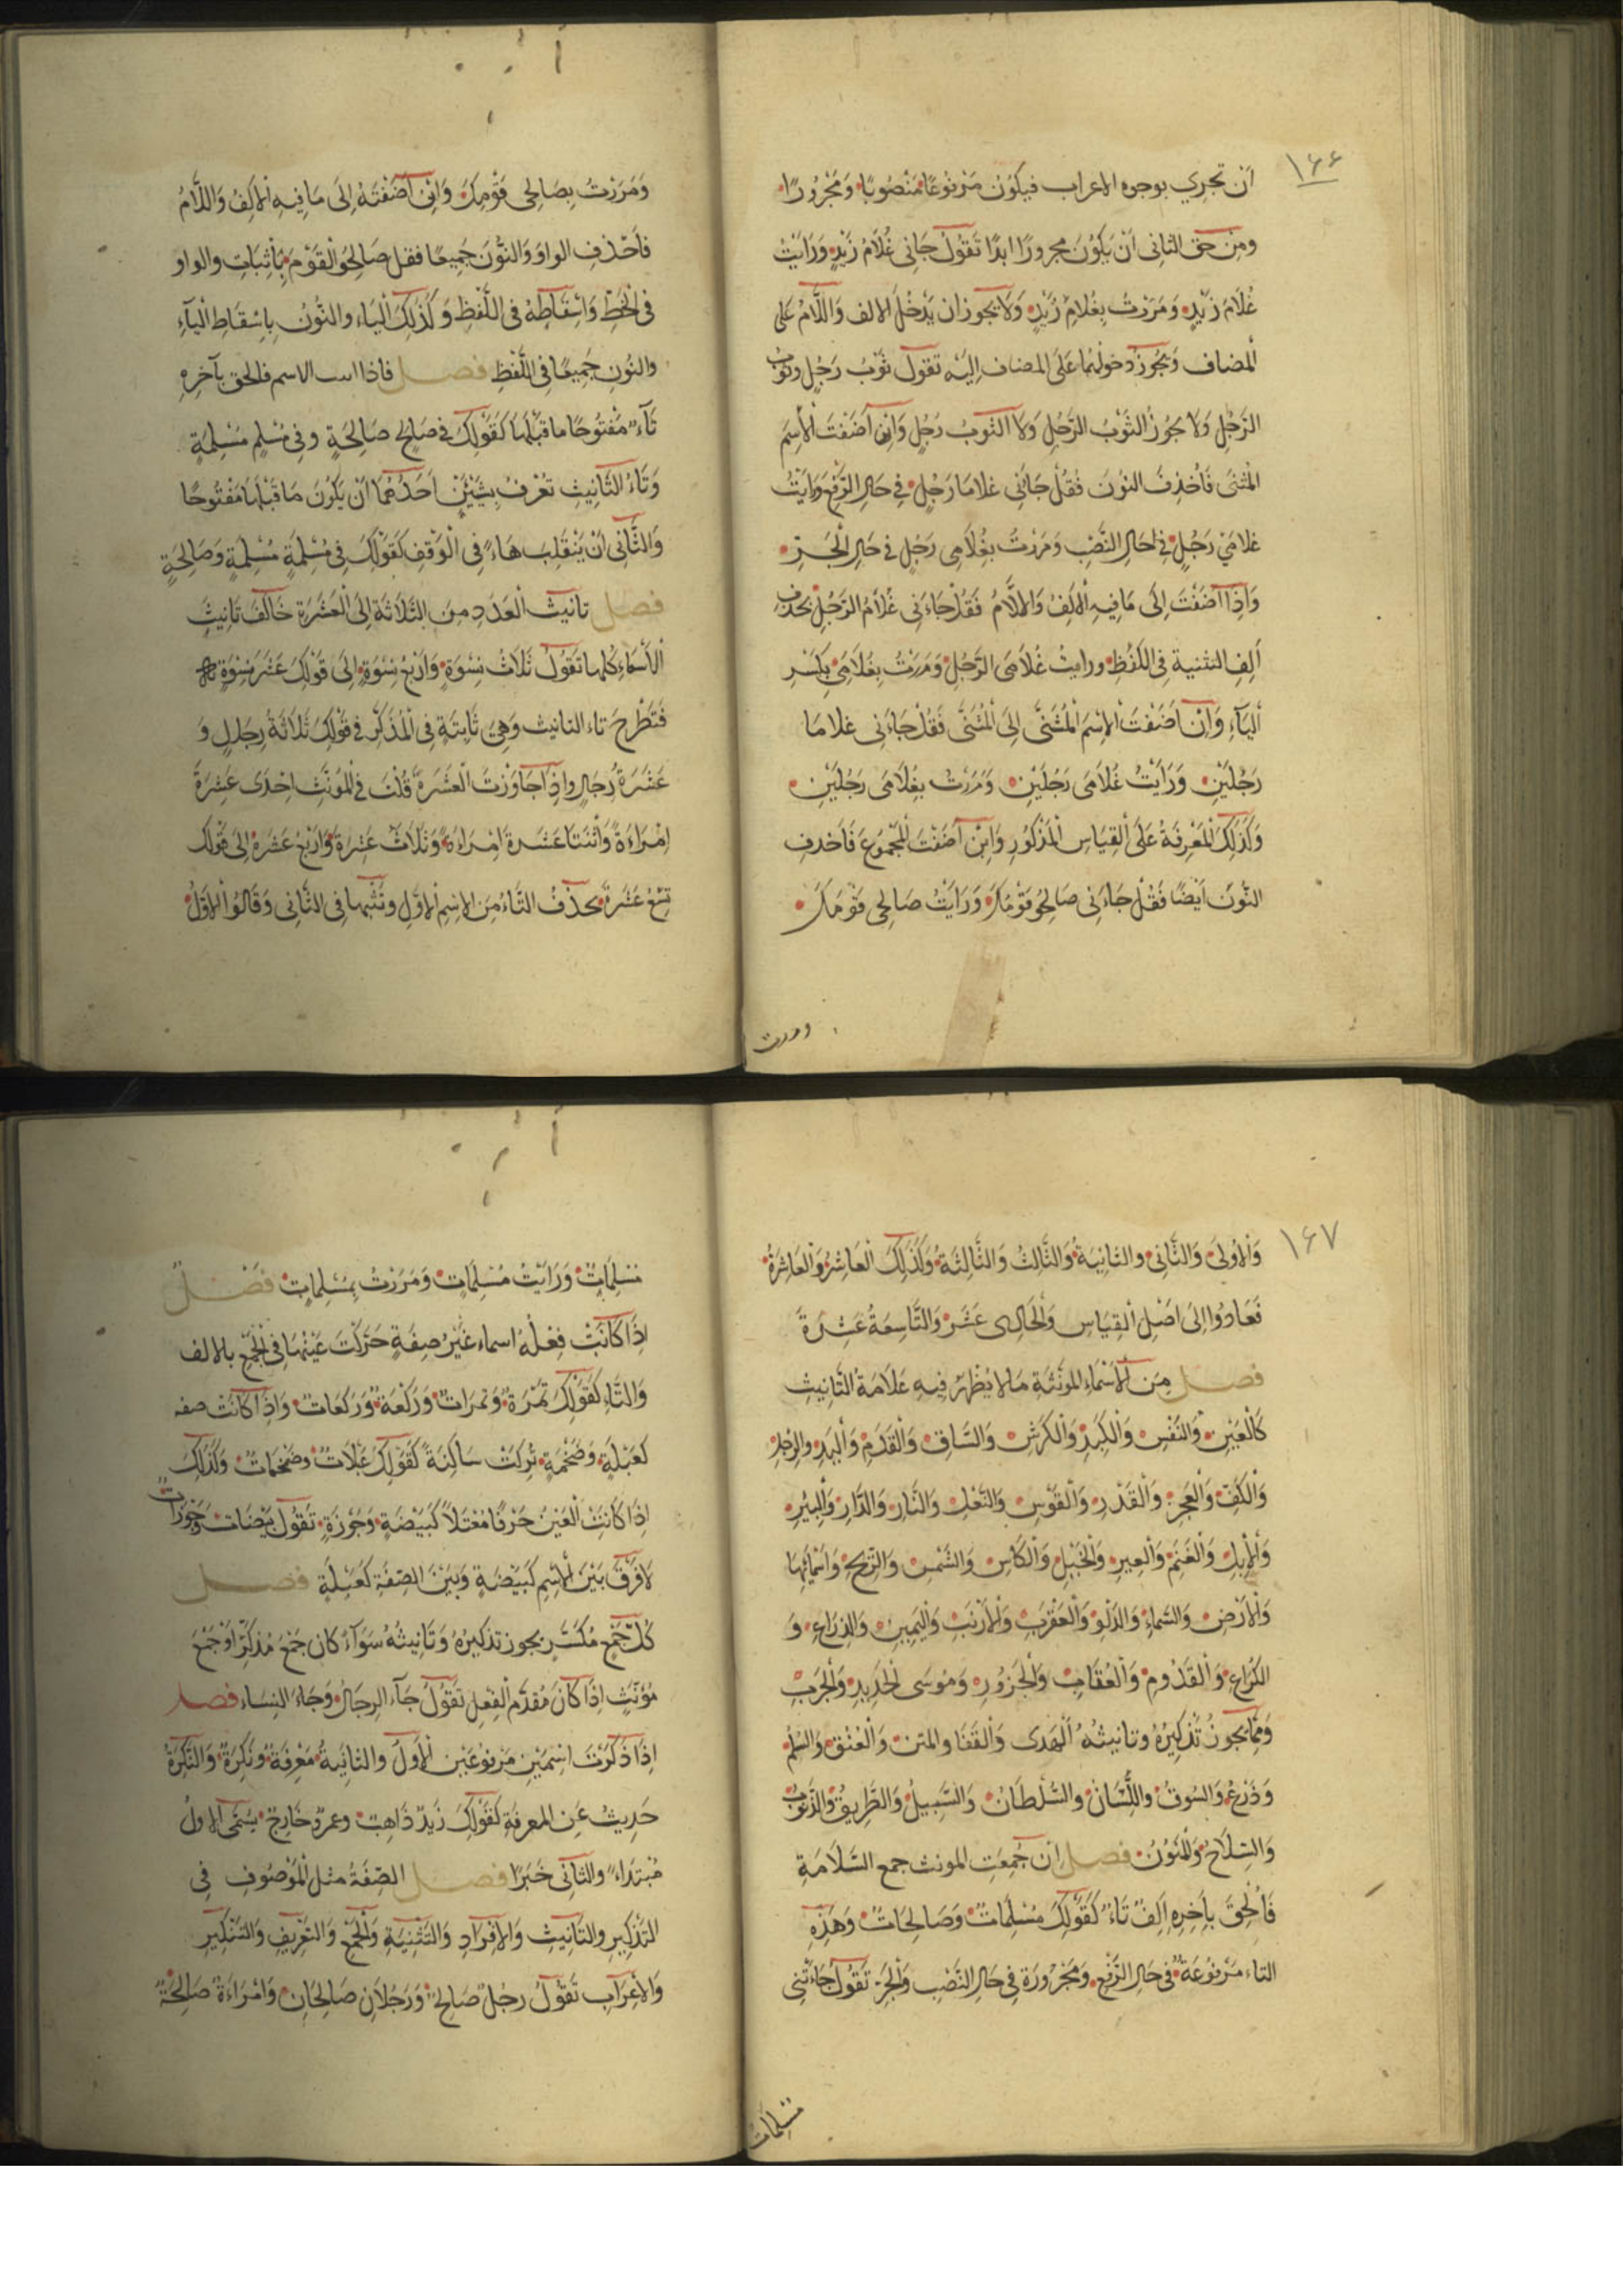 ١٦٦
ان تجري بوجوه الاعراب فيكون مَرْفوعًا مَنْصُوبًا وَمَجْرُورًا
ومن حق الثانى اَنْ يَكوُنَ مجرورًا ابدًا تَقوُلُ جَانى غُلَامُ زَيْدٍ وَرَاَيْتُ
غُلَامَ زَيْدٍ وَمَرَرْتُ بِغُلَامِ زَيْدٍ وَلَا يَجُوز ان يَدْخُلَ الالف وَاللَّامُ عَلى
المضاف وَيَجُوزُ دخولهُمَا عَلَى المضاف اِليَه تقوُلُ ثَوْبُ رَجُلٍ وثوبُ
الرَّجُلِ وَلَا يَجُوزُ الثَوْبُ الرَّجُلِ وَلَا الثوبُ رَجُلٍ وَاِنْ اَضَفْتَ الْاِسْمَ
المثنى فَاحْذِفْ النونَ فَقُلْ جَاَنى غلامَا رَجُلٍ فى حَالِ الرَّفْعِ وَرَاَيْتُ
غلامَىْ رَجُلٍ فى حَالِ النَّصْبِ وَمَرَرْتُ بِغُلَامَى رَجُلٍ فى حَالِ الْجَرِّ
وَاِذَا اَضَفْتَ اِلَى مَا فِيهِ الْاَلِفُ وَاللَّامُ فَقُلْ جَاءَنى غُلَامُ الرَّجُلِ بحَذف
اَلِفِ التثنية فِى اللَّفْظِ ورايتُ غُلَامَىِ الرَّجُلِ وَمَرَرْتُ بِغُلَامَىِ بِكَسْرِ
اليَاءِ وَاِنْ اَضَفْتَ الْاِسْمَ الْمُثَنَّى اِلَى الْمُثَنَّى فَقُلْ جَاءَنى غلامَا
رَجُلَيْنِ وَرَاَيْتُ غُلَامَى رَجُلَيْنِ وَمَرَرْتُ بِغُلَامَى رَجُلَيْنِ
وَكَذَلِكَ الْمَعْرِفَةُ عَلَى القِيَاسِ الْمَذْكوُرِ وَاِنْ اَضَفْتَ الْمَجْمُوعَ فَاَحذِف
النُّونَ اَيْضًا فَقُلْ جَاءَنى صَالحُو قَوْمِكَ وَرَاَيْتُ صَالِحِى قَوْمِكَ
ومررت
وَمَرَرْتُ بِصَالِحِى قَوْمِكَ وَاِنْ اَضَفْتَهُ اِلَى مَا فِيهِ الْاَلِفُ وَاللَّامُ
فَاَحْذِفِ الواوَ وَالنُّونَ جَمِيعًا فقل صَالِحُو الْقَوْمِ بِاِثْبَاتِ والواو
فى الْخَطِّ وَاِسْقَاطِهِ فى اللَّفْظِ وَكَذَلِكَ اليَاء والنُّونُ بِاِسْقَاطِ الْيَآءِ
والنُونِ جَمِيعًا فِى اللَّفْظِ فصل فاذا الاسم فالحق بآخِرِهِ
تَاءً مَفْتُوحًا ما قبْلَهَا كَقَوْلِكَ فى صَالِحٍ صَالِحَةٍ وفى مُسْلِمٍ مُسْلِمَةٍ
وَتَاءُ التَّانِيثِ تعْرَفُ بِشَيْئَيْنِ اَحَدُهُمَا اَنْ يَكُونَ مَا قَبْلَهَا مَفْتُوحًا
وَالثَّانِى اَنْ يَنْقَلِبَ هَاءً فى الْوَقفِ كَقَوْلِكَ فى مُسْلِمَةٍ مُسْلِمَةٍ وَصَالِحَةٍ
فصل تانيث العَدَدِ مِنَ الثَّلَاثَةِ اِلَى الْعَشَرَةِ خَالَفَ تَانِيثِ
الْاَسْمَاءِ كُلِّهَا تَقوُلُ ثَلَاثُ نِسْوَةٍ وَاَرْبَعُ نِسْوَةٍ اِلَى قَوْلِكَ عَشْرُ نِسْوَةٍ
فَتَطْرَحَ تاء التانيث وَهِىَ ثَابِتَةٍ فى الْمُذَكَّرِ فى قَوْلِكَ ثَلَاثَةُ رِجَالٍ وَ
عَشَرَةُ رِجَالٍ وَاذَا جَاوَزْتَ الْعَشَرَةَ قُلْتَ فى المُوَنَّثِ اِحْدَى عَشْرَةَ
اِمْرَاءَةً وَاثْنَتَا عَشْرَةَ اِمْرَاءَةً وَثَلَاثَ عَشْرَةَ وَاَرْبَعَ عَشْرَةَ اِلَى قَوْلِكَ
تِسْعَ عَشْرَةَ بحَذْفُ التَّاءُ مِنَ الاِسْمِ الْاَوَّلِ وَتُثْبِتُهَا فى الثَّانِى وَقَالُوا الْاَوَّلُ
١٦٧
وَالْاوُلَى وَالثَّانِى والثانيَةُ وَالثَّالِثُ وَالثَّالِثَةُ وَكَذَلِكَ الْعَاشِرُ وَالْعَاشِرَةُ
فَعَادُوا اِلَى اَصْلِ الْقِيَاسِ وَالْحَادِى عَشَرَ وَالتَّاسِعَةُ عَشْرَةَ
فصل مِنَ الْاَسْمَاءِ المُونَّثَةِ مَا لَا يَظْهَرُ فِيهِ عَلَامَةُ التَّانِيثِ
كَالْعَيْنِ وَالنَفْسِ وَالْكَبِدِ وَالْكَرِشِ وَالسَّاقِ وَالْقَدَمِ وَاليَدِ والرِّجْلِ
وَالْكَفِّ وَالْعَجِزِ وَالْقِدْرِ وَالْقَوْسِ وَالنَّعْلِ وَالنَّارِ وَالدَّارِ وَالْبِيْرِ
وَالْاِبِلِ وَالْغَنَمِ وَالْعِيرِ وَالْخَيْلِ وَالْكَاْسِ وَالشَّمْسِ وَالرِّيحِ وَاَسْمَائِهَا
وَالْاَرْضِ وَالسَّمَاءِ وَالدَّلْوِ وَالْعَقْرَبِ وَالْاَرْنَبِ وَالْيَمِينِ وَالذِرَاعِ وَ
الكُرَاعِ وَالْقَدُومِ وَالْعُقَابِ وَالْجَزُورِ وَمُوسَى الْحَدِيدِ وَالْحَرْبِ
وَمِمَّا يَجُوزُ تَذْكِيرُهُ وتانيثُهُ الْهُدَى وَالْقَفَا والمتن وَالْعُنُقِ وَالسِّلْمُ
وَدَرْعُ وَالسُوقُ وَاللِّسَانُ والسُّلْطَانُ وَالسَّبِيلُ وَالطَّرِيقُ وَالذَّنُوبُ
وَالسِّلَاحُ وَالْمَنُونُ فصل اِن جُمِعَتِ المونث جمع السَّلَامَةِ
فَاُلْحِقَ بِاَخِرِهِ اَلِفٌ تَاءً كَقَوْلِكَ مُسْلِمَاتٌ وَصَالِحَاتٌ وَهَذِهِ
التاء مَرْفوعَةٌ فى حَالِ الرَّفْعِ وَمَجْرُورَةٌ فى حَالِ النَّصْبِ وَالْجَرِّ تَقوُلُ جَاءَتْنِى
مسلمات
مُسْلِمَاتٌ وَرَاَيْتُ مُسْلِمَاتٍ وَمَرَرْتُ بِمُسْلِمَاتٍ فَصْلٌ
اِذَا كَانَتْ فِعْلَهُ اسماء غَيْرَ صِفَةٍ حَرَّكْتَ عَيْنَهَا فى الْجَمْعِ بالالف
وَالتَّاءِ كَقَوْلِكَ تَمْرَةٌ وَتمَرَاتٌ وَرَكْعَةٌ وَرَكَعَاتٌ وَاِذَا كَانَتْ صفه
كَعَبْلَةٍ وَضَخْمَةٍ تُرِكَتْ سَاكِنَةً كَقَوْلِكَ عَبْلَاتٌ وَضَخْمَاتٌ وَكَذَلِكَ
اِذَا كَانَتْ الْعَيْنُ حَرْفًا مُعْتَلًا كَبَيْضَةٍ وَجَوْزَةٍ تَقُولُ بَيْضَاتٌ وَجَوْزَاتٌ
لَا فَرْقَ بَيْنَ الْاِسْمِ كَبَيْضَةٍ وَبَيْنَ الصِّفَةِ كَعَبْلَةٍ فصل
كُلُّ جَمْعٍ مُكَسَّرٍ يجوز تذكيرُهُ وَتَانِيثُهُ سَوَآءً كان جَمْعَ مُذَكَّرٍ اَوْ جَمْعَ
مُوَنَّثٍ اِذَا كَانَ مُقَدَّمَ الْفِعْلِ تَقوُلُ جَآءَ الرِجَالُ وَجَاءَ النِسَاء فصل
اِذَا ذَكَرْتَ اِسْمَيْنِ مَرْفوعَيْنِ الْاَوَلُ والثانِيةُ مَعْرِفَةٌ وَنَكِرَةٌ وَالنَّكِرَةُ
حَدِيثٌ عَنِ المعرفَةِ كَقَوْلِكَ زَيْدٌ ذَاهِبٌ وعمرٌو خَارِجٌ يُسَمَّى الاولُ
مُبْتَدَاءً والثانى خَبَرًا فصل الصّفَةُ مثل الْمَوْصُوفِ فى
التَّذْكِيرِ والتَّانِيثِ وَالْاِفْرَادِ وَالتَثْنِيَةِ وَالْجَمْعِ وَالتَعْرِيفِ وَالتَنْكِيرِ
وَالْاِعْرَابِ تَقوُلُ رجُلٌ صَالِحٌ وَرَجُلَانِ صَالِحَانِ وَامْرَاءَةٌ صَالِحَةٌ